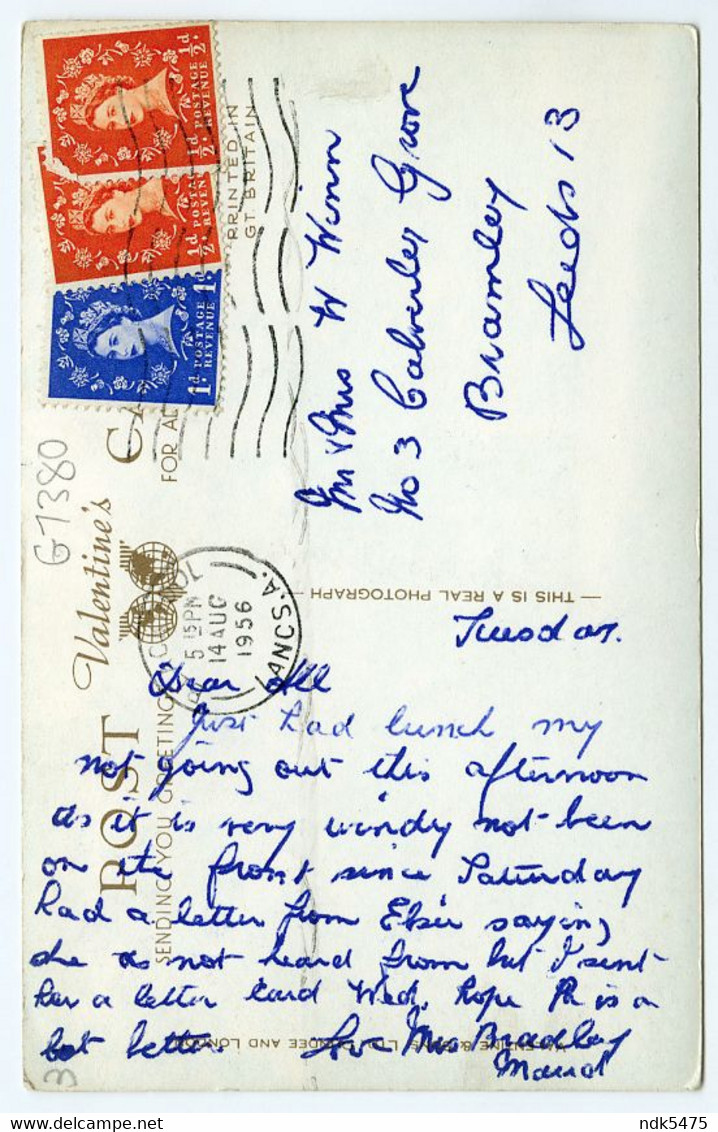 ½d POSTAGE REVENUE ½d
½d POSTAGE REVENUE ½d
1d POSTAGE REVENUE 1d
PRINTED IN
GT. BRITAIN
Mr & Mrs W Winn
No 3 Calverley Grove
Bramley
Leeds 13
G1380
POST CA
Valentine's
FOR AD
SENDING YOU GREETING
5 15 PM
14 AUG
1956
LANCS.A.
— THIS IS A REAL PHOTOGRAPH —
Tuesday.
Dear All
Just had lunch my
not going out this afternoon
as it is very windy not been
on the front since Saturday
had a letter from Elsie saying
she as not heard from but I sent
her a letter card Wed. hope is a
bit better. Love Mrs Bradley
Maud
VALENTINE & SONS, LTD., DUNDEE AND LONDON
3
ndk5475